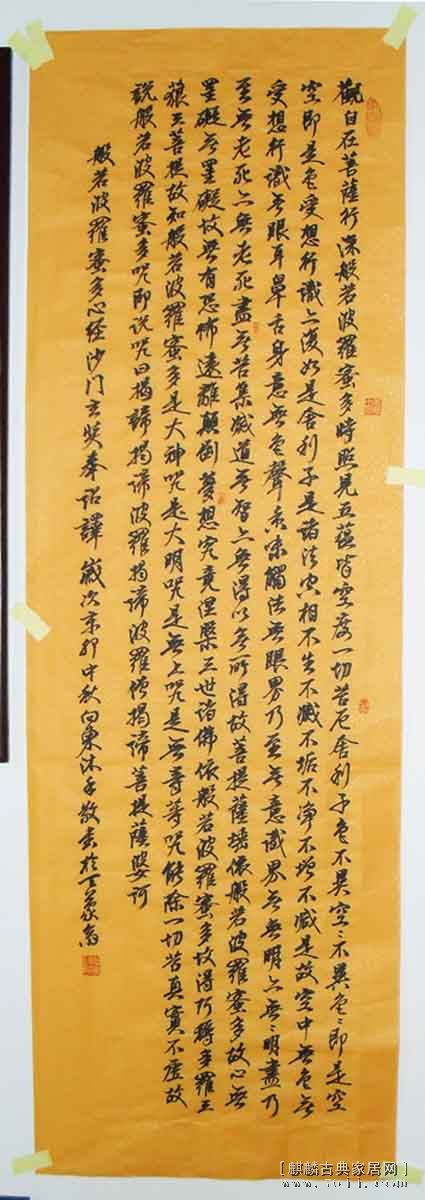 觀自在菩薩行深般若波羅蜜多時照見五蘊皆空度一切苦厄舍利子色不異空〻不異色〻即是空
空即是色受想行識亦復如是舍利子是諸法空相不生不滅不垢不淨不增不減是故空中無色無
受想行識無眼耳鼻舌身意無色聲香味觸法無眼界乃至無意識界無無明亦無〻明盡乃
至無老死亦無老死盡無苦集滅道無智亦無得以無所得故菩提薩埵依般若波羅蜜多故心無
罣礙無罣礙故無有恐怖遠離顛倒夢想究竟涅槃三世諸佛依般若波羅蜜多故得阿耨多羅三
藐三菩提故知般若波羅蜜多是大神咒是大明咒是無上咒是無等等咒能除一切苦真實不虛故
說般若波羅蜜多咒即說咒曰揭諦揭諦波羅揭諦波羅僧揭諦菩提薩婆訶
般若波羅蜜多心經沙門玄奘奉詔譯 歲次辛卯中秋向東沐手敬書於
[麒麟古典家居网]